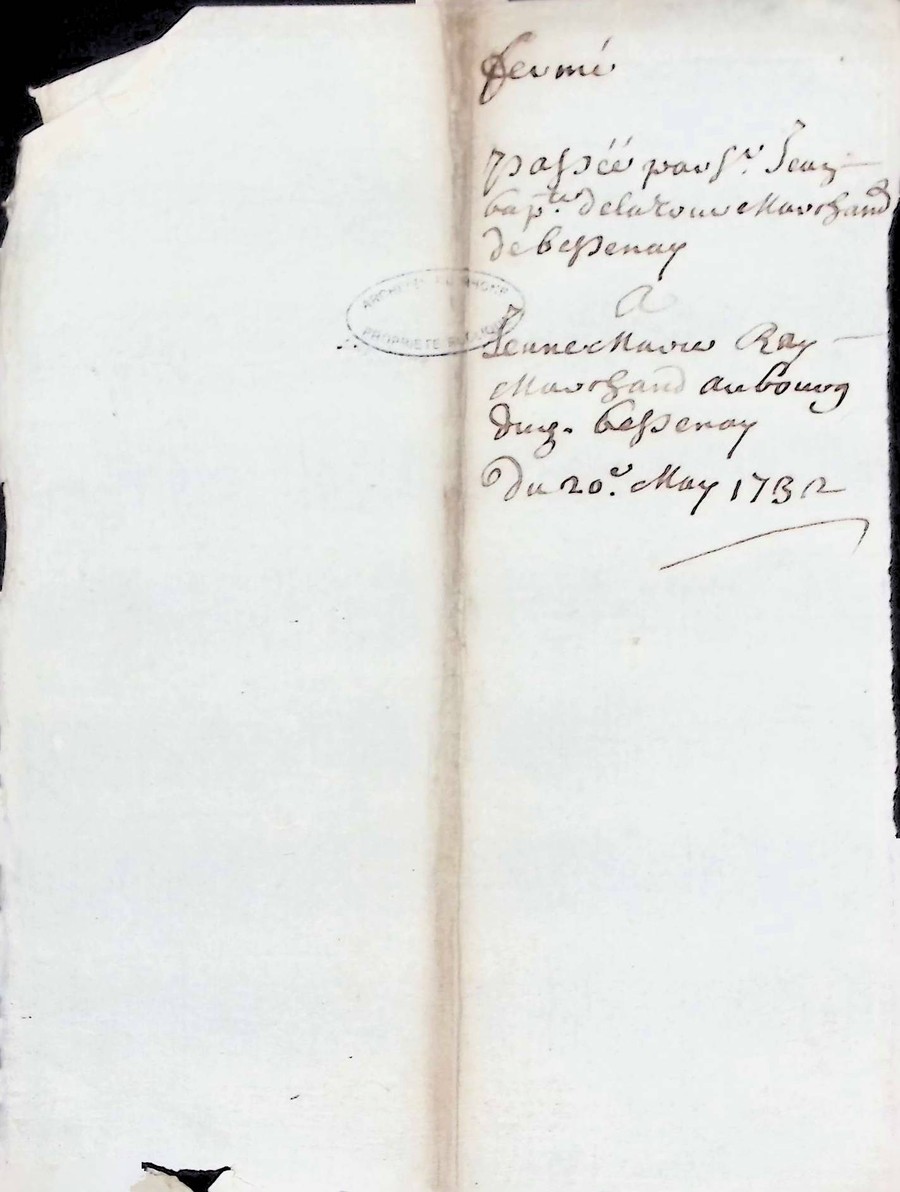 ferme
passée par Sr. Jean
bapte. delatour Marchand
de bessenay
A
Jeanne Marie Ray
Marchand au bourg
dud. bessenay
Du 20e. May 1732
ARCHIVES DU RHONE
PROPRIETE PUBLIQUE